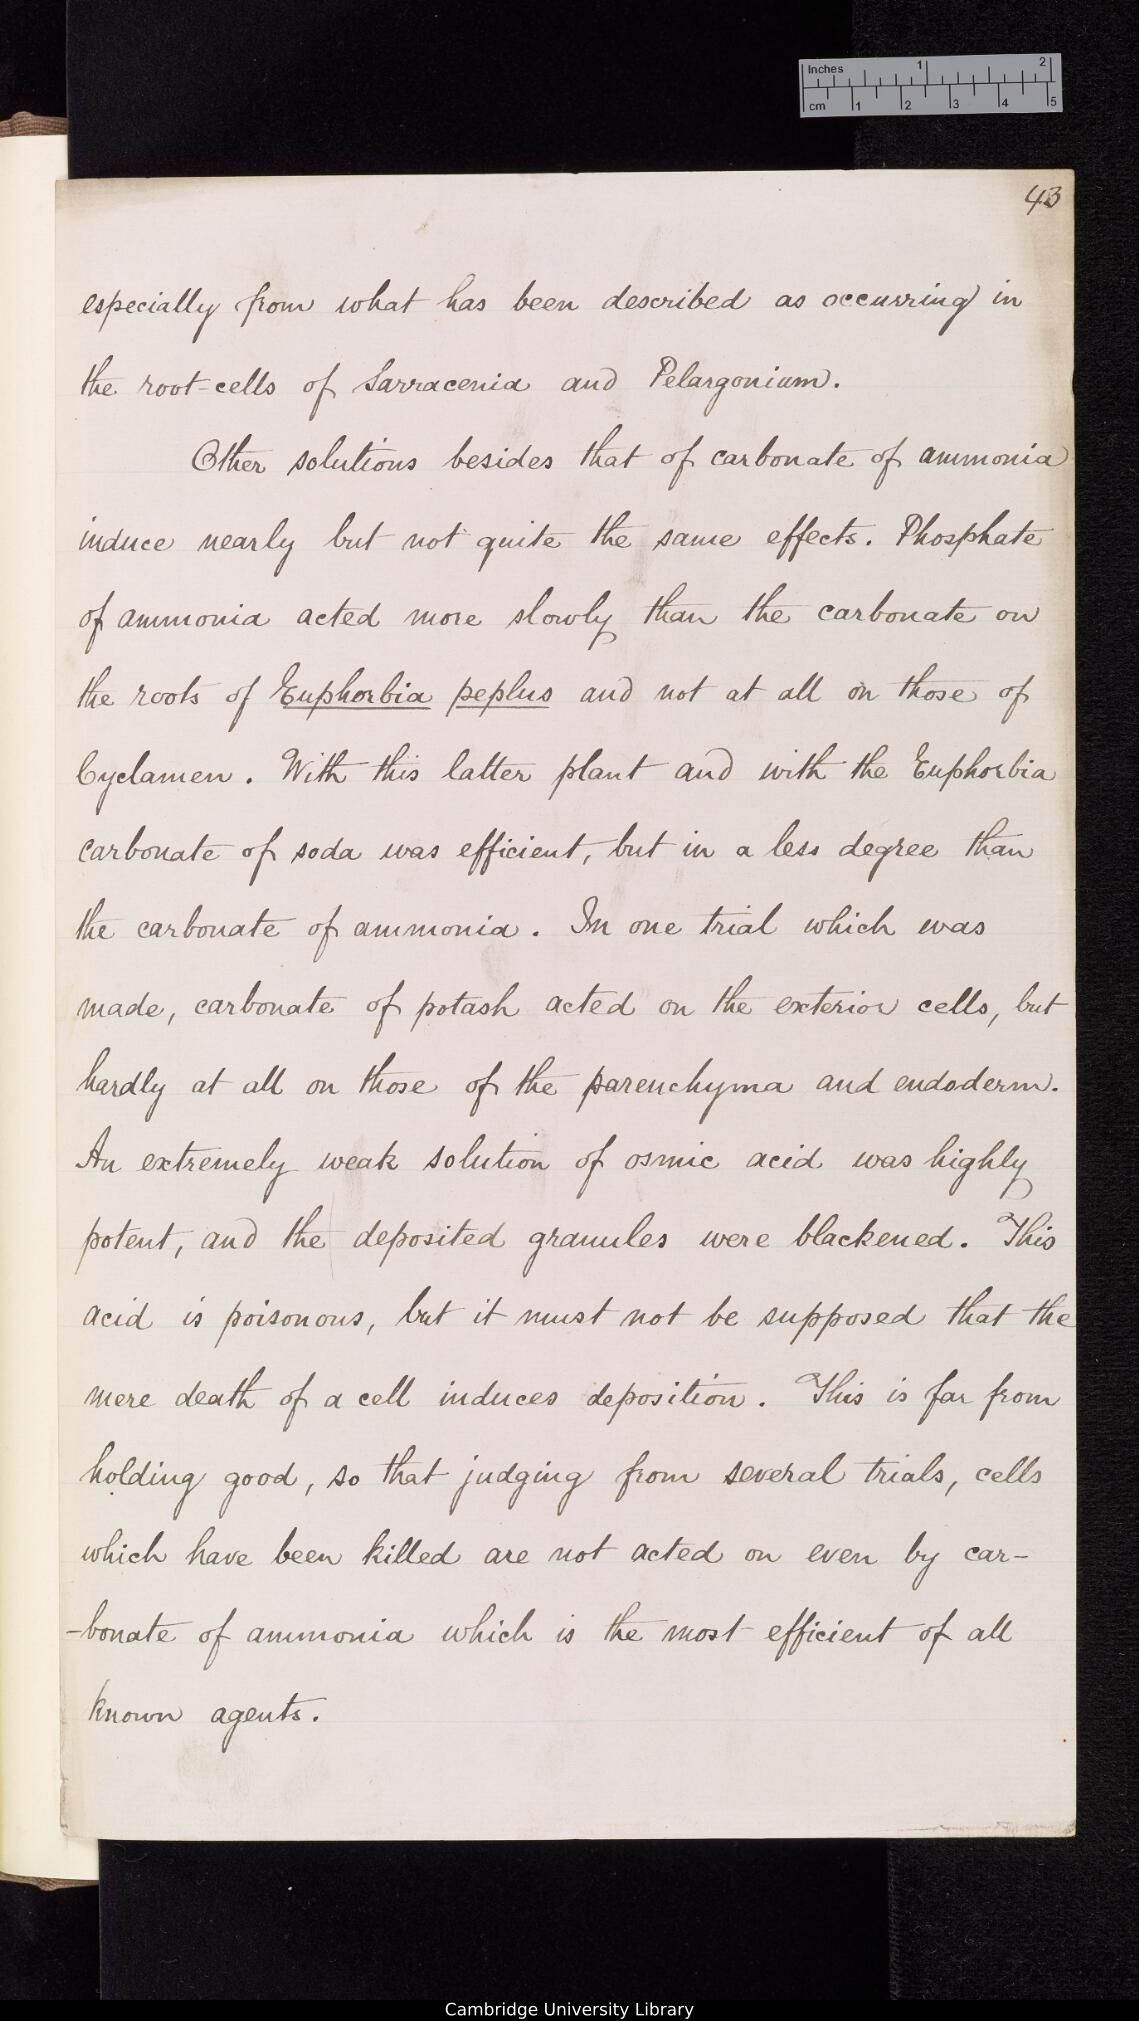 Inches 1 2
cm 1 2 3 4 5
43
especially from what has been described as occurring in
the root-cells of Sarracenia and Pelargonium.
Other solutions besides that of carbonate of ammonia
induce nearly but not quite the same effects. Phosphate
of ammonia acted more slowly than the carbonate on
the roots of Euphorbia peplus and not at all on those of
Cyclamen. With this latter plant and with the Euphorbia
carbonate of soda was efficient, but in a less degree than
the carbonate of ammonia. In one trial which was
made, carbonate of potash acted on the exterior cells, but
hardly at all on those of the parenchyma and endoderm.
An extremely weak solution of osmic acid was highly
potent, and the deposited granules were blackened. This
acid is poisonous, but it must not be supposed that the
mere death of a cell induces deposition. This is far from
holding good, so that judging from several trials, cells
which have been killed are not acted on even by car-
-bonate of ammonia which is the most efficient of all
known agents.
Cambridge University Library